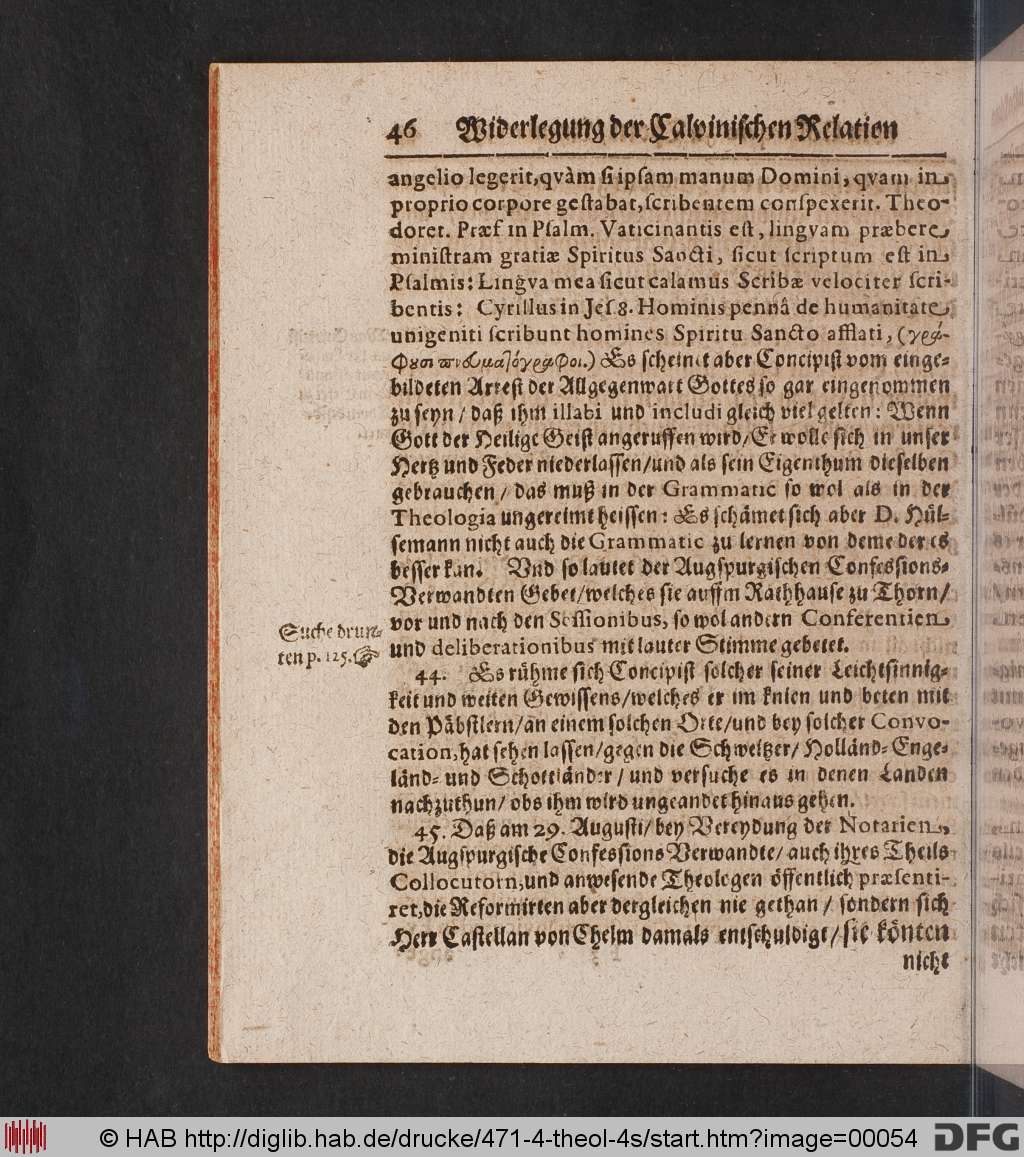 46 Widerlegung der Calvinischen Relation
angelio legerit, qvàm si ipsam manum Domini, qvam in
proprio corpore gestabat, scribentem conspexerit. Theo-
doret. Præf in Psalm. Vaticinantis est, lingvam præbere
ministram gratiæ Spiritus Sancti, sicut scriptum est in
Psalmis: Lingva mea sicut calamus Scribæ velociter scri-
bentis: Cyrillus in Jes 8. Hominis pennâ de humanitate
unigeniti scribunt homines Spiritu Sancto afflati, (γρά-
φουσι πνευματόγραφοι.) Es scheinet aber Concipist vom einge-
bildeten Arrest der Allgegenwart Gottes so gar eingenommen
zu seyn / daß ihm illabi und includi gleich viel gelten: Wenn
Gott der Heilige Geist angeruffen wird / Er wolle sich in unser
Hertz und Feder niederlassen / und als sein Eigenthum dieselben
gebrauchen / das muß in der Grammatic so wol als in der
Theologia ungereimt heissen: Es schämet sich aber D. Hül-
semann nicht auch die Grammatic zu lernen von deme der es
besser kan. Und so lautet der Augspurgischen Confessions-
Verwandten Gebet / welches sie auffm Rathhause zu Thorn /
vor und nach den Sessionibus, so wol andern Conferentien
und deliberationibus mit lauter Stimme gebetet.
Suche drun-
ten p. 125.
44. Es rühme sich Concipist solcher seiner Leichtsinnig-
keit und weiten Gewissens / welches er im knien und beten mit
den Päbstlern / an einem solchen Orte / und bey solcher Convo-
cation, hat sehen lassen / gegen die Schweitzer / Holländ- Enge-
länd- und Schottländer / und versuche es in denen Landen
nachzuthun / obs ihm wird ungeandet hinaus gehen.
45. Daß am 29. Augusti / bey Vereydung der Notarien,
die Augspurgische Confessions Verwandte / auch ihres Theils
Collocutorn, und anwesende Theologen öffentlich præsenti-
ret, die Reformirten aber dergleichen nie gethan / sondern sich
Herr Castellan von Chelm damals entschuldigt / sie könten
nicht
© HAB http://diglib.hab.de/drucke/471-4-theol-4s/start.htm?image=00054
DFG